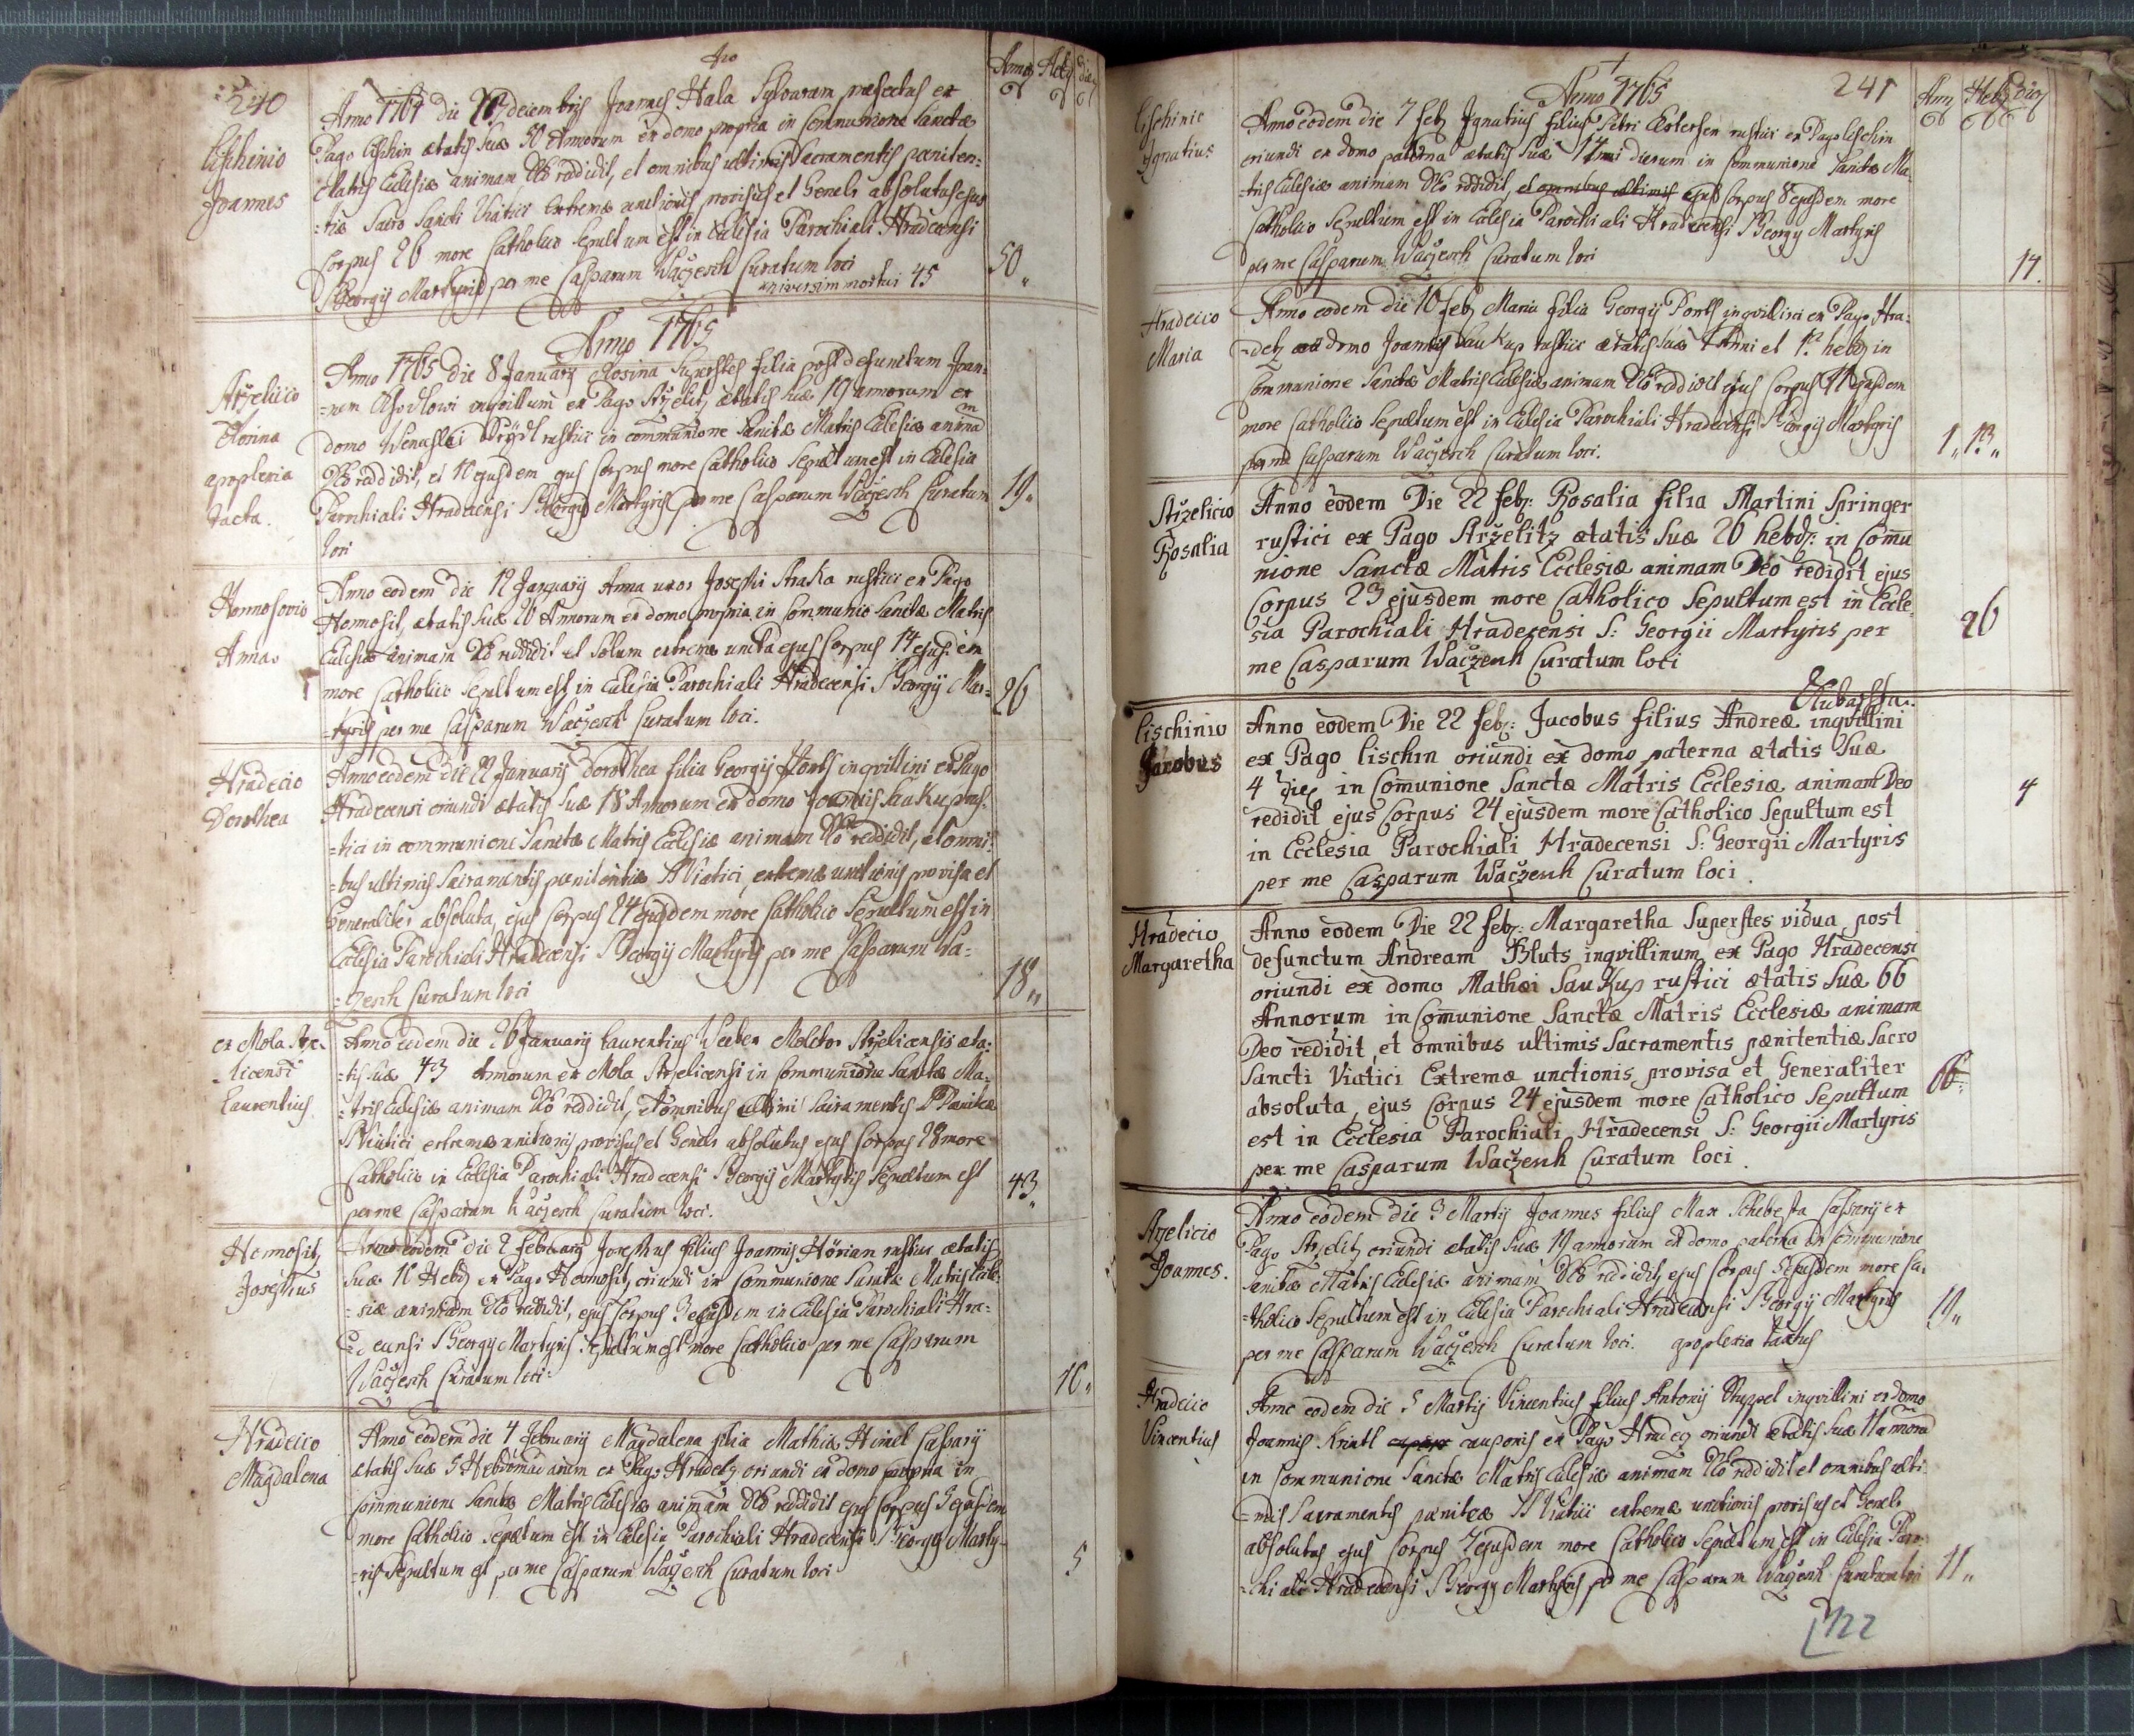 240
Annoꝝ Hebdꝫ dieꝝ
Lischinio
Joannes
Anno 1764 die 26 decembris Joannes Hala Sylvarum præfectus ex
Pago Lischin ætatis suæ 50 Annorum ex domo propria in Communione Sanctæ
Matris Ecclesiæ animam Deo reddidit, et omnibus ultimis Sacramentis pœniten:
=tiæ Sacro Sancti Viatici Extremæ unctionis provisus et Genelr absolutus ejus
Corpus 28 more Catholico Sepultum est in Ecclesia Parochiali Hradecensi
S Georgij Martyris per me Casparum Waczesch Curatum loci
universim mortui 45
50
Anno 1765
Strzelicio
Rosina
apoplexia
tacta.
Anno 1765 die 8 January Rosina Superstes filia post defunctum Joan:
=nem inqvillinum ex Pago Strzelitz ætatis suæ 19 annorum ex
domo Wenceslai rustici in communione Sanctæ Matris Ecclesiæ animam
Deo reddidit, et 10 ejusdem ejus Corpus more Catholico Sepultum est in Ecclesia
Parochiali Hradecensi S Georgij Martyris per me Casparum Waczesch Curatum
loci
19
Hermosovio
Anna
Anno eodem die 12 January Anna uxor Josephi Straka rustici ex Pago
Hermosit, ætatis suæ 26 Annorum ex domo propria in Communio Sanctæ Matris
Ecclesiæ animam Deo reddidit et Solum extreme uncta ejus Corpus 14 ejusdem
more Catholico Sepultum est in Ecclesia Parochiali Hradecensi S Georgij Mar=
=tyris per me Casparum Waczesch Curatum loci.
26
Hradecio
Dorothea
Anno eodem die 22 January Dorothea filia Georgij Ponts inqvillini ex Pago
Hradecensi oriundi ætatis suæ 18 Annorum ex domo Joannis Saukup rus:
=tici in communione Sanctæ Matris Ecclesiæ animam Deo reddidit, et omni:
=bus ultimis Sacramentis pœnitentiæ SS Viatici, extremæ unctionis provisa et
Generaliter absoluta, ejus Corpus 24 ejusdem more Catholico Sepultum est in
Ecclesia Parochiali Hradecensi S Georgij Martyris per me Casparum Wa=
=czesch Curatum loci
18
ex Mola Strze
licensi
Laurentius
Anno eodem die 26 January Laurentius Weber Molitor Strzelicensis æta:
=tis suæ 43 Annorum ex Mola Strzelicensi in Communione Sanctæ Ma:
=tris Ecclesiæ animam Deo reddidit, et omnibus ultimi Sacramentis Pœniteæ
SViatici extremæ unctionis provisus et Genelr absolutus ejus Corpus 28 more
Catholico in Ecclesia Parochiali Hradecensi S Georgij Martyris Sepultum est
per me Casparum Waczesch Curatum loci.
43
Hermositz
Josephus
Anno eodem die 2 February Josephus filius Joannis Hörian rustici ætatis
suæ 16 Hebdꝫ ex Pago Hermositz oriundi in Communione Sanctæ Matris Eccle:
=siæ animam Deo reddidit, ejus Corpus 3 ejusdem in Ecclesia Parochiali Hra=
=decensi S Georgij Martyris Sepultum est more Catholico per me Casparum
Waczesch Curatum loci:
16
Hradecio
Magdalena
Anno eodem die 4 February Magdalena filia Mathiæ Himel Casparij
ætatis suæ 5 Hebdomadarum ex Pago Hradetz oriundi ex domo propria in
Communione Sanctæ Matris Ecclesiæ animam Deo reddidit ejus Corpus 5 ejusdem
more Catholico Sepultum est in Ecclesia Parochiali Hradecensi S Georgij Marty=
=ris Sepultum est per me Casparum Waczesch Curatum loci
5
Anno 1765
241
Annꝫ Hebdꝫ dieꝝ
Lischinio
Ignatius
Anno eodem die 7 febꝫ Ignatius filius Petri rustici ex Pago Lischin
oriundi ex domo paterna ætatis suæ 14 dierum in Communione Sanctæ Ma:
=tris Ecclesiæ animam Deo reddidit, et omnibus ultimis ejus Corpus 8 ejusdem more
Catholico Sepultum est in Ecclesia Parochiali Hradecensi S Georgij Martyris
per me Casparum Waczesch Curatum loci
14.
Hradecio
Maria
Anno eodem die 16 febꝫ Maria filia Georgij Ponts inqvillini ex Pago Hra:
=detz domo Joannis Saukup rustici ætatis suæ 1 Anni et 13 hebdꝫ in
Communione Sanctæ Matris Ecclesiæ animam Deo reddidit ejus Corpus 17 ejusdem
more Catholico Sepultum est in Ecclesia Parochiali Hradecensi S Georgij Martyris
per me Casparum Waczesch Curatum loci.
1 13
Strzelicio
Rosalia
Anno eodem Die 22 febꝫ: Rosalia filia Martini Springer
rustici ex Pago Strzelitz ætatis Suæ 26 hebdꝫ: in Com̄u
nione Sanctæ Matris Ecclesiæ animam Deo redidit ejus
Corpus 23 ejusdem more Catholico Sepultum est in Eccle
sia Parochiali Hradecensi S: Georgii Martyris per
me Casparum Waczesch Curatum loci
26
Lischinio
Jacobus
Kubaſſta.
Anno eodem Die 22 febꝫ: Jacobus filius Andreæ inqvillini
ex Pago Lischin oriundi ex domo paterna ætatis Suæ
4 dieꝝ in Com̄unione Sanctæ Matris Ecclesiæ animam Deo
redidit ejus Corpus 24 ejusdem more Catholico Sepultum est
in Ecclesia Parochiali Hradecensi S: Georgii Martyris
per me Casparum Waczesch Curatum loci.
4
Hradecio
Margaretha
Anno eodem Die 22 febꝫ: Margaretha Superstes vidua post
defunctum Andream Bluts inqvillinum ex Pago Hradecensi
oriundi ex domo Mathæi SauKup rustici ætatis Suæ 66
Annorum in Com̄unione Sanctæ Matris Ecclesiæ animam
Deo redidit, et omnibus ultimis Sacramentis pænitentiæ Sacro
Sancti Viatici Extremæ unctionis provisa et Generaliter
absoluta, ejus Corpus 24 ejusdem more Catholico Sepultum
est in Ecclesia Parochiali Hradecensi S: Georgii Martyris
per me Casparum Waczesch Curatum loci.
66
Strzelicio
Joannes.
Anno eodem die 3 Martij Joannes filius Max Schebesta Casparij ex
Pago Strzelitz oriundi ætatis suæ 19 annorum ex domo paterna in Communione
Sanctæ Matris Ecclesiæ animam Deo reddidit, ejus Corpus 5 ejusdem more Ca:
=tholico Sepultum est in Ecclesia Parochiali Hradecensi S Georgij Martyris
per me Casparum Waczesch Curatum loci. apoplexia tactus
19
Hradecio
Vincentius
Anno eodem die 5 Martij Vincentius filius Antonij Stuppel inqvillini ex domo
Joannis Krintl cauponis ex Pago Hradeg oriundi ætatis suæ 11 annorū
in Communione Sanctæ Matris Ecclesiæ animam Deo reddidit et omnibus ulti
=mis Sacramentis pœniteæ SS Viatici extremæ unctionis provisus et Genelr
absolutus ejus Corpus 7 ejusdem more Catholico Sepultum est in Ecclesia Paro=
=chiali Hradecensi S Georgij Martyris per me Casparum Waczesch Curatum loci
11
122